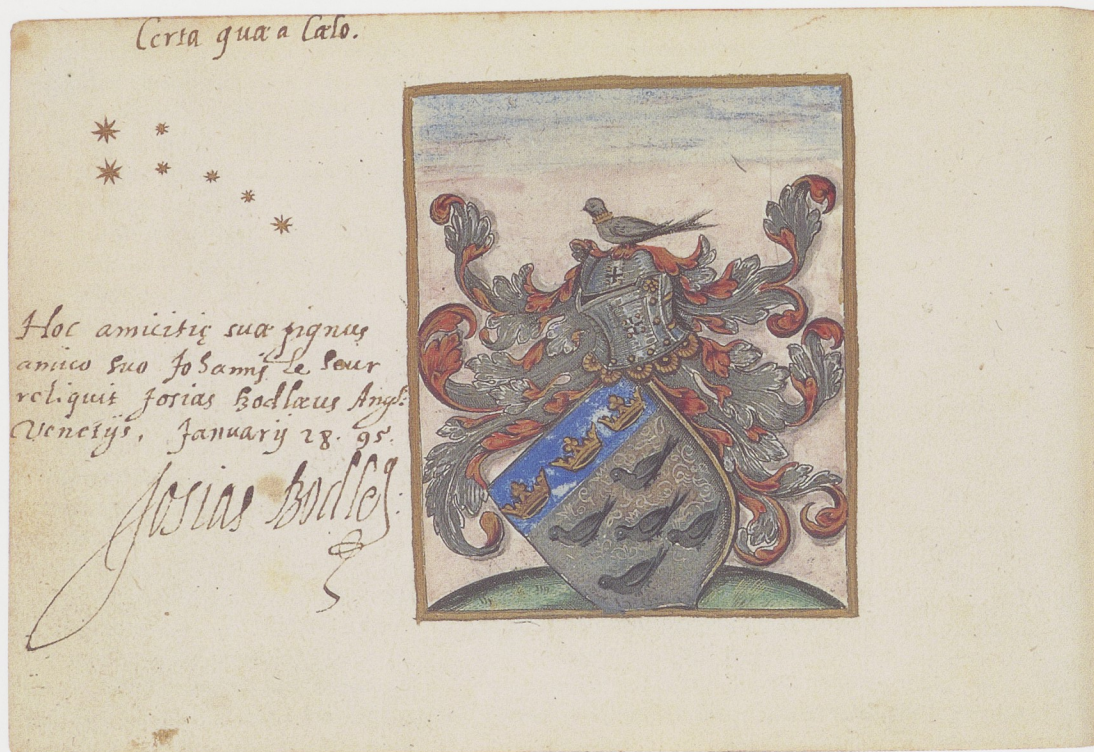 Certa quæ a Cælo.
Hoc amicitię suæ pignus
amico suo Johannj le Seur
reliquit Josias Bodlæus Angl:
Venetijs. Januarij 28. 95.
Josias Bodleÿ: